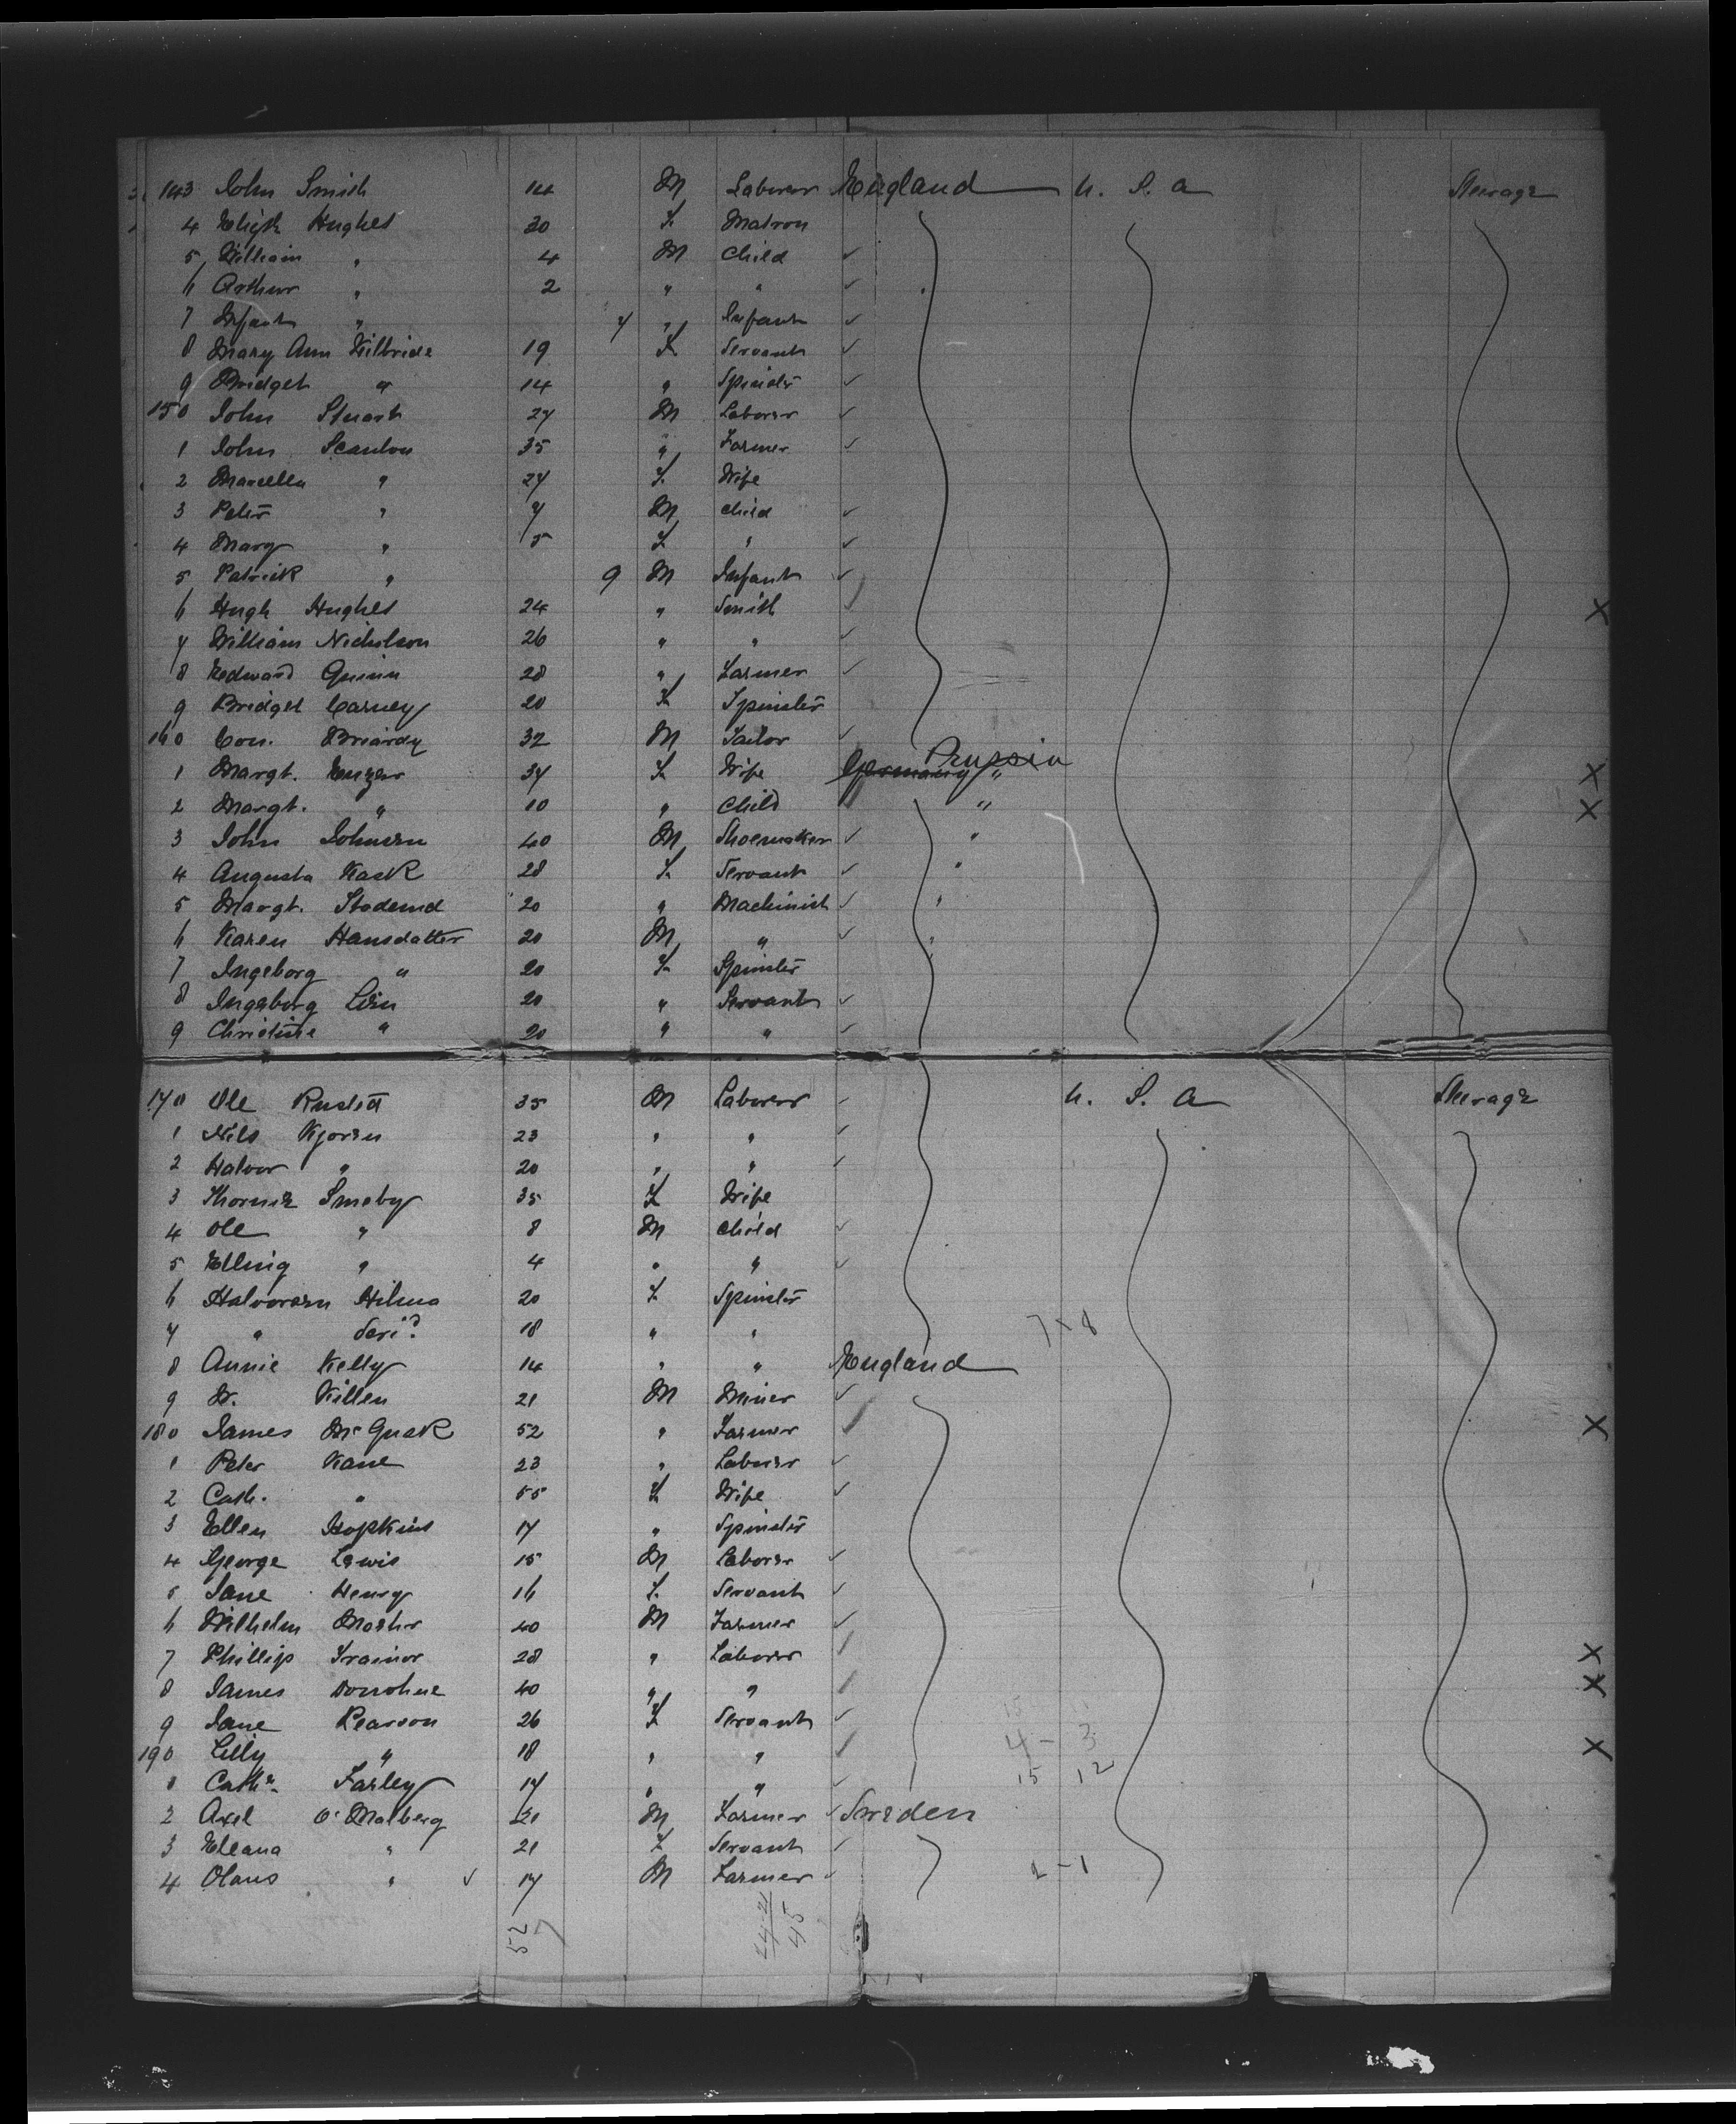 143 John Smith 14 M Laborer England U. S. A Steerage
4 Elizth Hughes 30 F. Matron
5 William " 4 M Child
6 Arthur " 2 " "
7 Infant " 7 " Infant
8 Mary Ann Kilbride 19 F Servant
9 Bridget " 14 " Spinstr
150 John Stuart 27 M Laborer
1 John Scanlon 35 " Farmer
2 Marcella " 27 F. Wife
3 Peter " 7 M Child
4 Mary " 5 F "
5 Patrick " 9 M Infant
6 Hugh Hughes 24 " Smith X
7 William Nicholson 26 " "
8 Edward Quinn 28 " Farmer
9 Bridget Carney 20 F Spinster
160 Con. Briardy 32 M Tailor
1 Margt. 34 F. Wife Germany Prussia " X
2 Margt. " 10 " Child " X
3 John Johnsen 40 M Shoemaker "
4 Augusta Kask 28 F. Servant "
5 Margt. 20 " Machinist "
6 Karen Hansdatter 20 M " "
7 Ingeborg " 20 F. Spinster
8 Ingeborg 20 " Servant
9 Christine " 20 " "
170 Ole 35 M Laborer U. S. A Steerage
1 Nils Kjorsen 23 " "
2 Halvor " 20 " "
3 Smeby 35 F Wife
4 Ole " 8 M Child
5 Elling " 4 " "
6 Halvorsen Hilma 20 F. Spinster
7 " Seri? 18 " " 7 x 8
8 Annie Kelly 14 " " England
9 W. Killen 21 M Miner
180 James 52 " Farmer X
1 Peter Kane 23 " Laborer
2 Cath. " 55 F Wife
3 Ellen Hopkins 17 " Spinster
4 George Lewis 15 M Laborer
5 Jane Henry 16 F. Servant
6 Wilhelm 40 M Farmer
7 Phillip Trainor 28 " Laborer X
8 James Donohue 40 " " X
9 Jane Pearson 26 F Servant 15
190 Lilly " 18 " " 4 - 3 X
1 Cathe. Farley 17 " " 15 12
2 Axel O. Malberg 21 M Farmer Sweden
3 Eleana " 21 F Servant
4 Olaus " 17 M Farmer 2 - 1
52
24-21
45